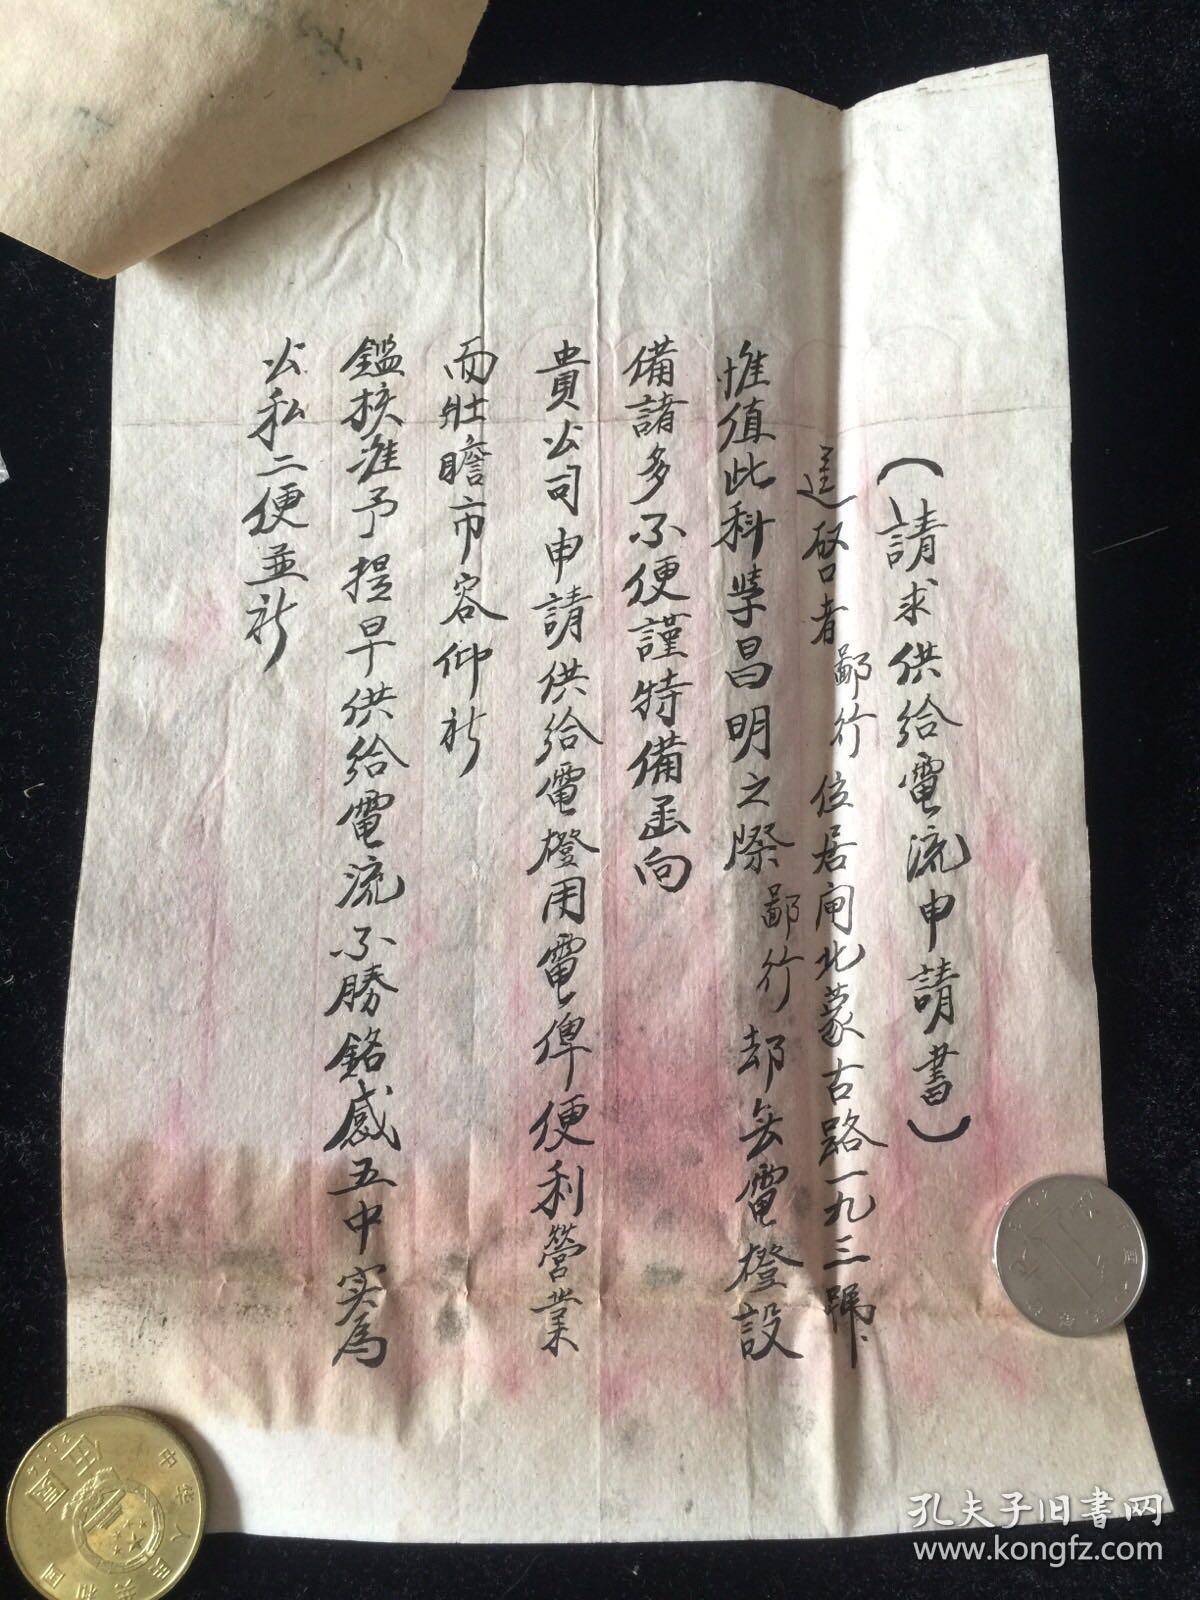 (請求供給電流申請書)
逕啓者鄙行位居闸北蒙古路一九三號
惟值此科學昌明之際鄙行却无電橙設
備諸多不便謹特備函向
貴公司申請供給電橙用電俾便利營業
而壯瞻市容仰祈
鑑核准予提早供給電流不勝銘感五中实為
公私二便並祈
孔夫子旧书网
www.kongfz.com
中华人民共和国